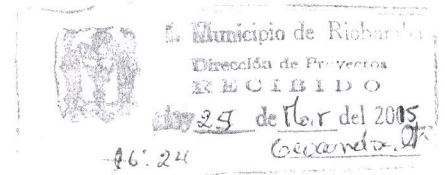 I. Municipio de Riobamba
Dirección de Proyectos
RECIBIDO
hoy 29 de Mar del 2005
16:24